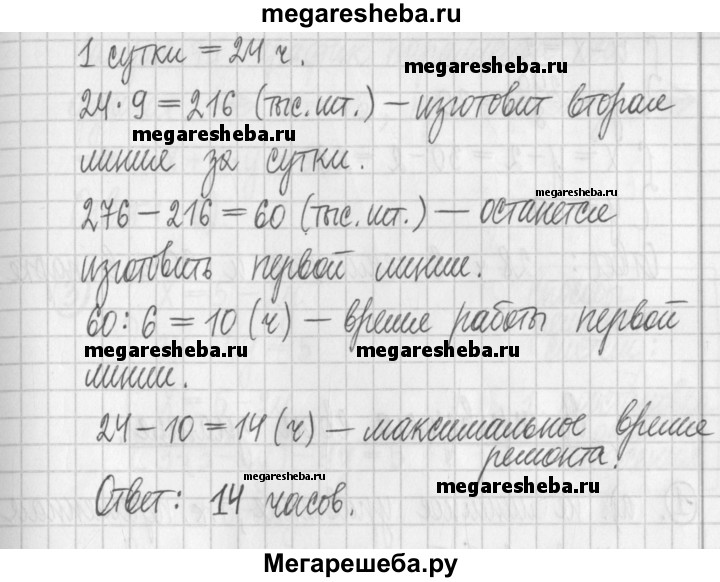 megaresheba.ru
1 сутки = 24 ч.
megaresheba.ru
24·9 = 216 (тыс.шт.) – изготовит вторая
megaresheba.ru
линия за сутки.
megaresheba.ru
276 – 216 = 60 (тыс.шт.) – останется
изготовить первой линии.
60 : 6 = 10 (ч) – время работы первой
megaresheba.ru megaresheba.ru
линии.
24 – 10 = 14 (ч) – максимальное время
ремонта.
megaresheba.ru
Ответ: 14 часов.
megaresheba.ru
Мегарешеба.ру